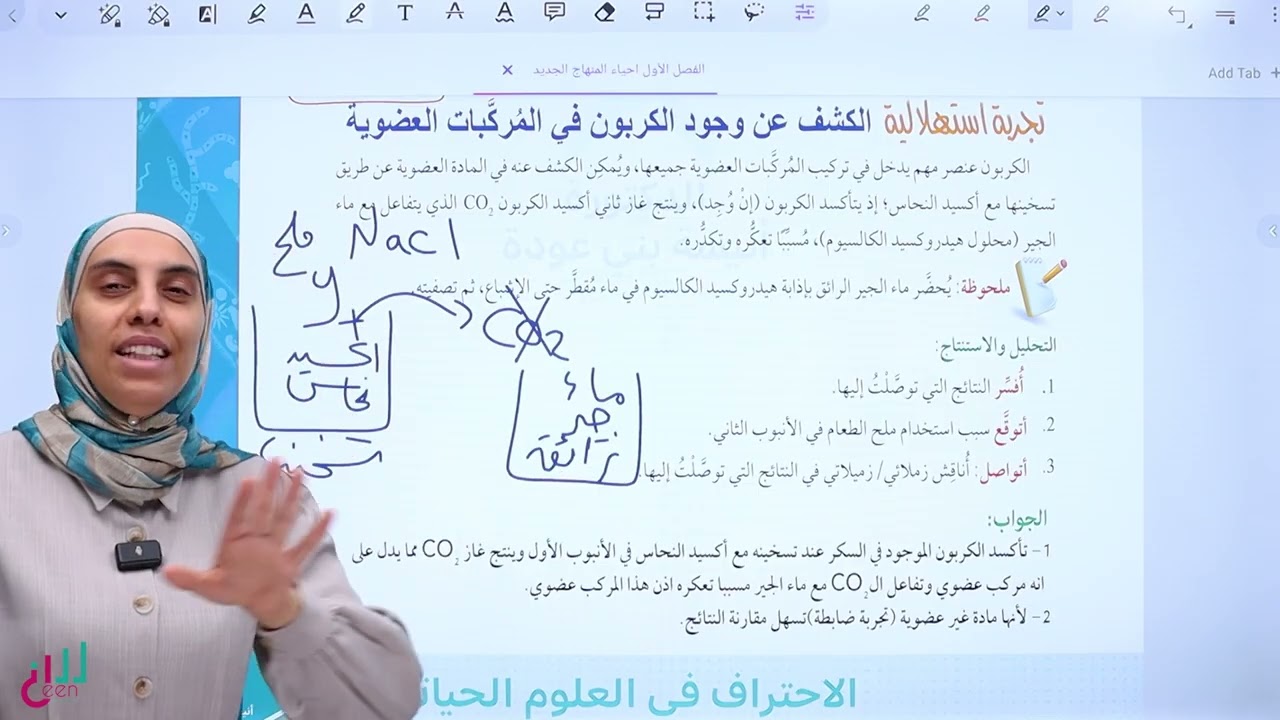 الفصل الأول احياء المنهاج الجديد
Add Tab
تجربة استهلالية الكشف عن وجود الكربون في المُركَّبات العضوية
الكربون عنصر مهم يدخل في تركيب المُركَّبات العضوية جميعها، ويُمكِن الكشف عنه في المادة العضوية عن طريق
تسخينها مع أكسيد النحاس؛ إذ يتأكسد الكربون (إنْ وُجِد)، وينتج غاز ثاني أكسيد الكربون CO2 الذي يتفاعل مع ماء
الجير (محلول هيدروكسيد الكالسيوم)، مُسبِّبًا تعكُّره وتكدُّره.
ملح NaCl
ملحوظة: يُحضَّر ماء الجير الرائق بإذابة هيدروكسيد الكالسيوم في ماء مُقطَّر حتى الإشباع، ثم تصفيته.
CO2
+
اكسيد
نحاس
تسخين
ماء
جير
رائقة
التحليل والاستنتاج:
1. أُفسِّر النتائج التي توصَّلْتُ إليها.
2. أتوقَّع سبب استخدام ملح الطعام في الأنبوب الثاني.
3. أتواصل: أُناقِش زملائي/ زميلاتي في النتائج التي توصَّلْتُ إليها.
الجواب:
1- تأكسد الكربون الموجود في السكر عند تسخينه مع أكسيد النحاس في الأنبوب الأول وينتج غاز CO2 مما يدل على
انه مركب عضوي وتفاعل الCO2 مع ماء الجير مسببا تعكره اذن هذا المركب عضوي.
2- لأنها مادة غير عضوية (تجربة ضابطة)تسهل مقارنة النتائج.
الاحتراف في العلوم الحيات